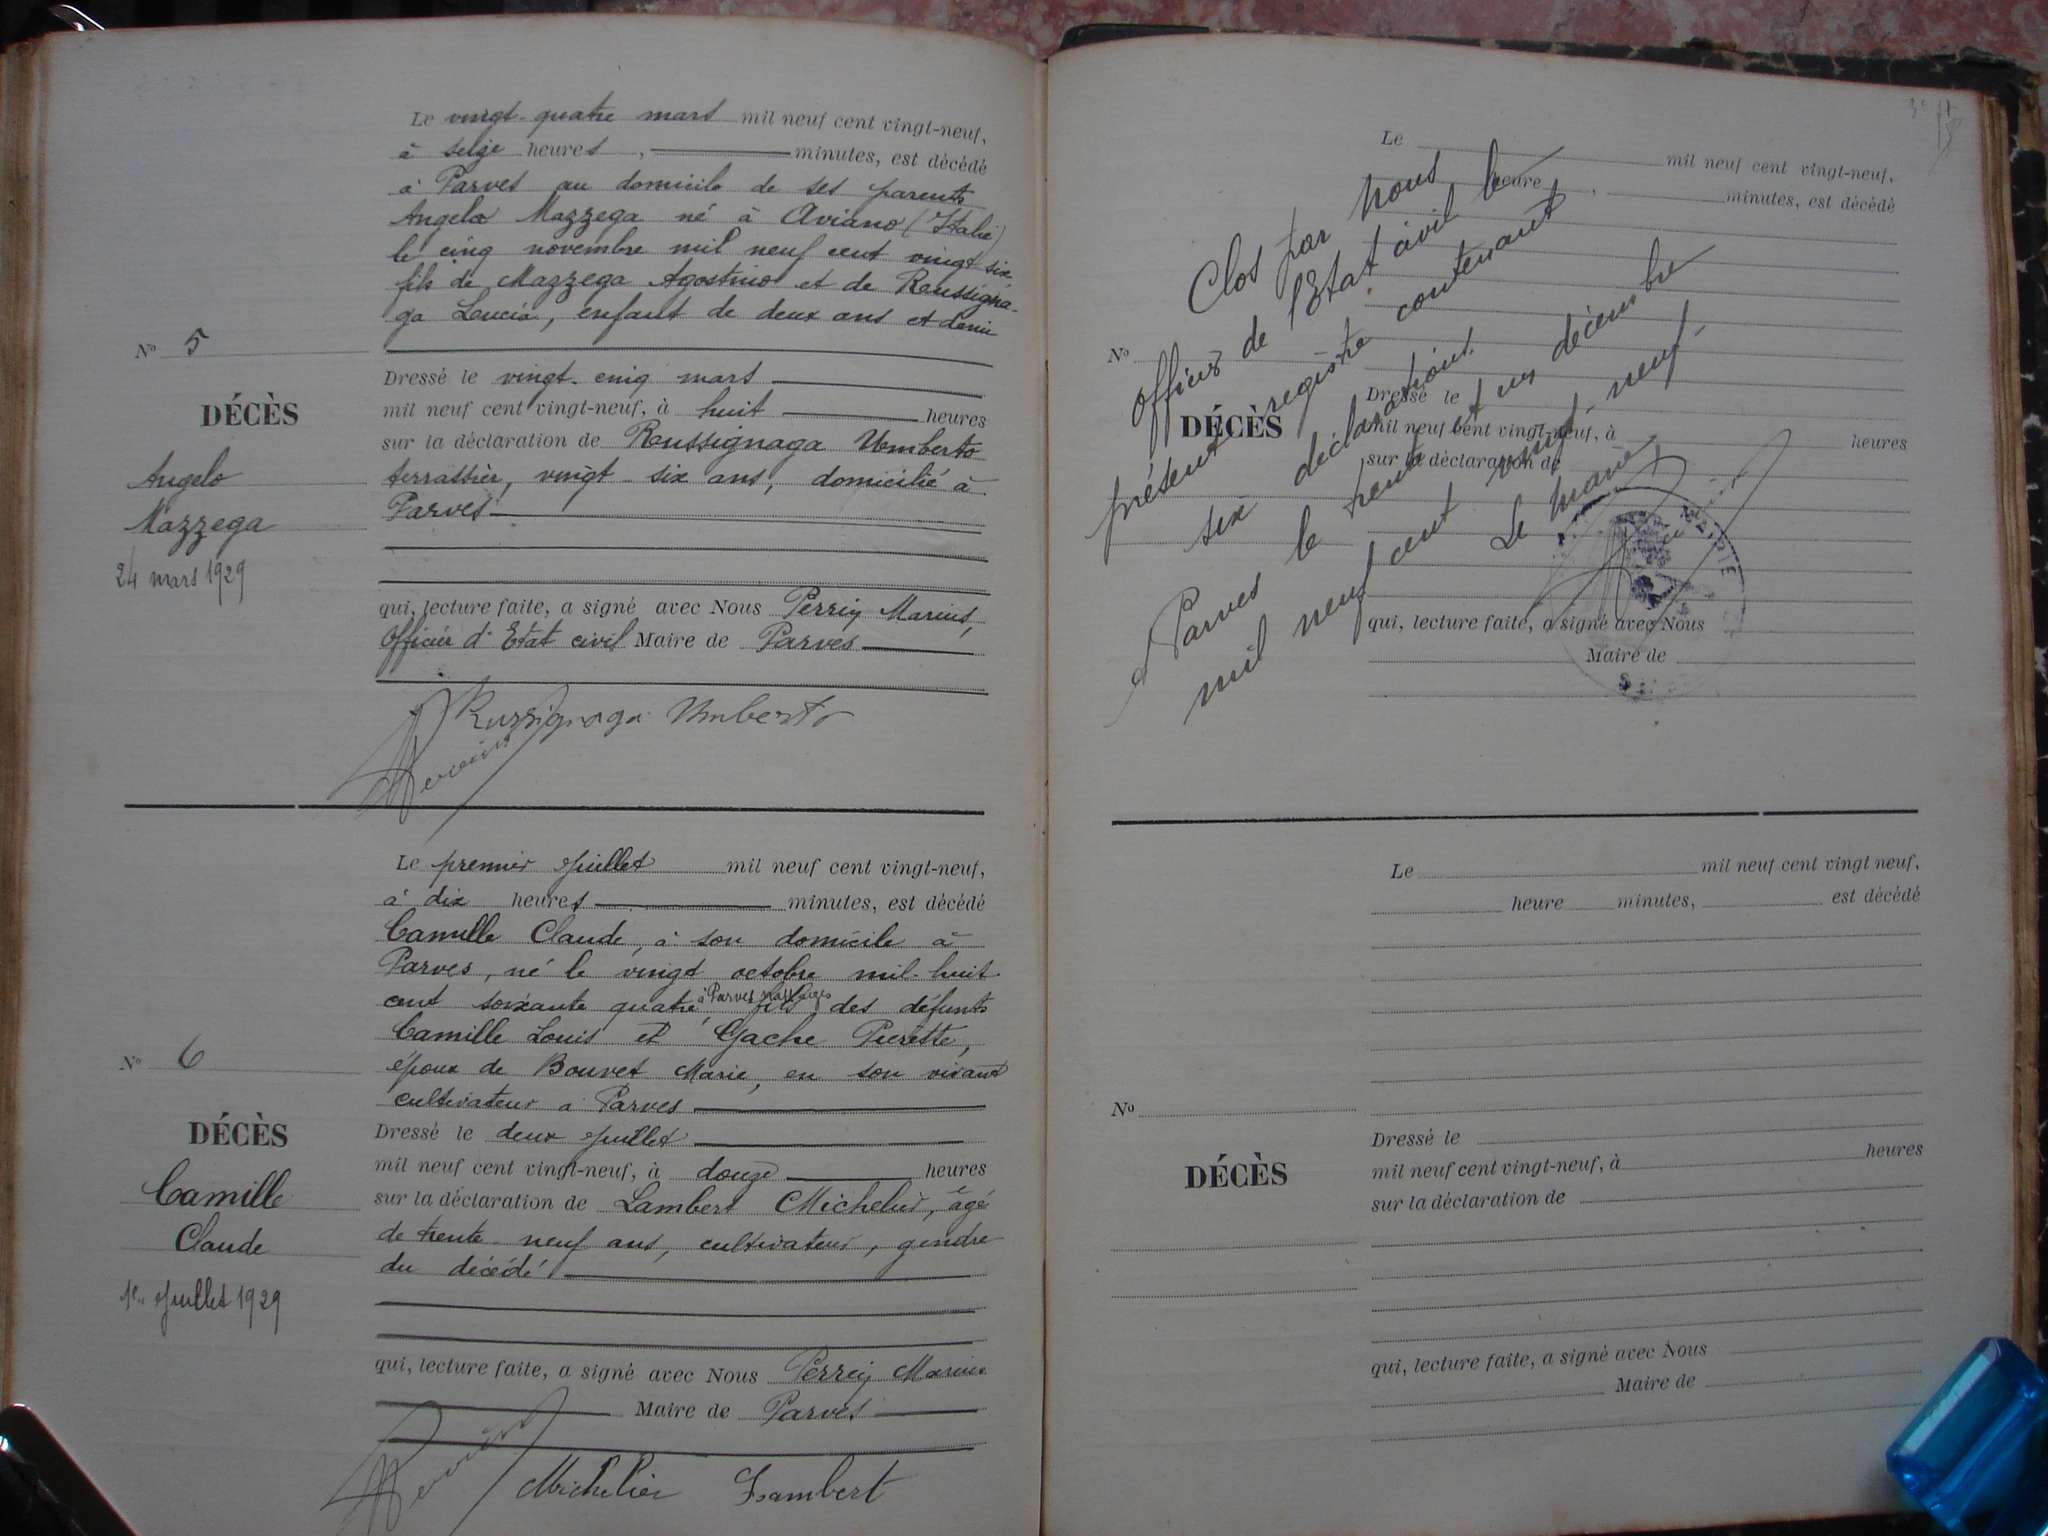 Le vingt-quatre mars mil neuf cent vingt-neuf,
à seize heures, minutes, est décédé
à Parves au domicile de ses parents
Angelo Mazzega né à Aviano (Italie)
le cinq novembre mil neuf cent vingt six
fils de Mazzega Agostino et de Roussigna-
ga Loucia, enfant de deux ans et demi
N° 5
DÉCÈS
Angelo
Mazzega
24 mars 1929
Dressé le vingt-cinq mars
mil neuf cent vingt-neuf, à huit heures
sur la déclaration de Roussignaga Umberto
terrassier, vingt-six ans, domicilié à
Parves
qui, lecture faite, a signé avec Nous Perrin Marius,
Officier d'Etat civil Maire de Parves
Russignaga Umberto
Perrin
Le premier Juillet mil neuf cent vingt-neuf,
à dix heures minutes, est décédé
Camille Claude, à son domicile à
Parves, né le vingt octobre mil-huit
cent soixante quatre, à Parves fils des défunts
Camille Louis et Gache Pierette,
époux de Bouvet Marie, en son vivant
cultivateur à Parves
N° 6
DÉCÈS
Camille
Claude
1er Juillet 1929
Dressé le deux Juillet
mil neuf cent vingt-neuf, à douze heures
sur la déclaration de Lambert Michelier, âgé
de trente-neuf ans, cultivateur, gendre
du décédé
qui, lecture faite, a signé avec Nous Perrin Marius
Maire de Parves
Perrin
Michelier Lambert
Le mil neuf cent vingt-neuf,
heure, minutes, est décédé
N°
DÉCÈS
Dressé le
mil neuf cent vingt-neuf, à heures
sur la déclaration de
qui, lecture faite, a signé avec Nous
Maire de
Clos par nous
officier de l'Etat civil le
présent registre contenant
six déclarations.
Parves le trente et un décembre
mil neuf cent vingt-neuf.
Le maire,
MAIRIE
Le mil neuf cent vingt neuf,
heure minutes, est décédé
N°
DÉCÈS
Dressé le
mil neuf cent vingt-neuf, à heures
sur la déclaration de
qui, lecture faite, a signé avec Nous
Maire de